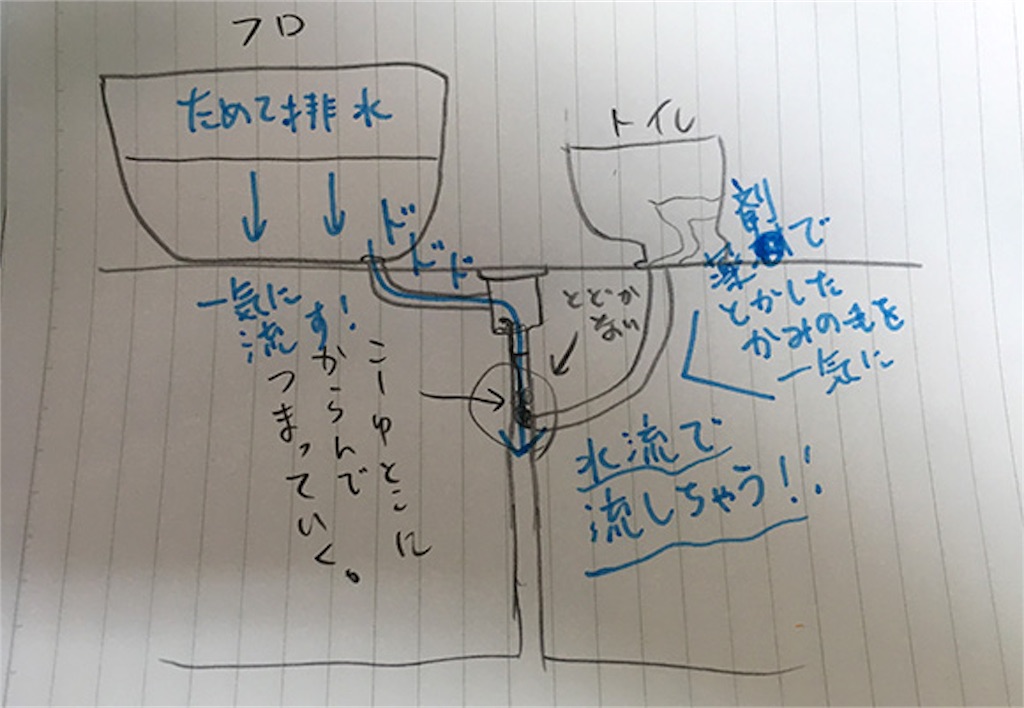 フロ
ためて排水
ドドド
一気に
流す!
こーゆとこに
からんで
つまっていく。
トイレ
とどか
ない
薬剤で
とかした
かみの毛を
一気に
水流で
流しちゃう!!